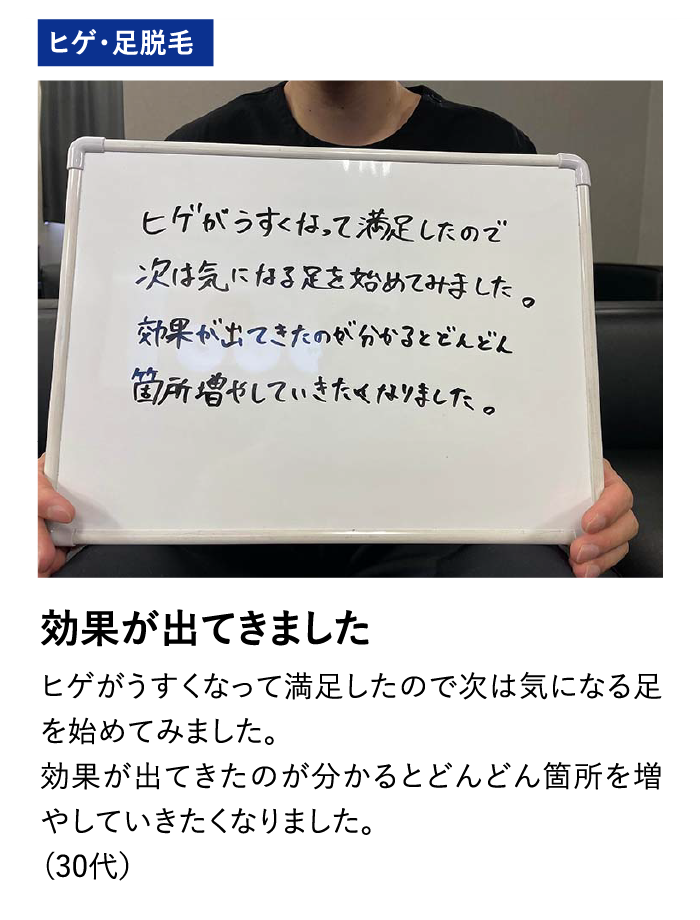 ヒゲ・足脱毛
ヒゲがうすくなって満足したので
次は気になる足を始めてみました。
効果が出てきたのが分かるとどんどん
箇所増やしていきたくなりました。
効果が出てきました
ヒゲがうすくなって満足したので次は気になる足
を始めてみました。
効果が出てきたのが分かるとどんどん箇所を増
やしていきたくなりました。
(30代)